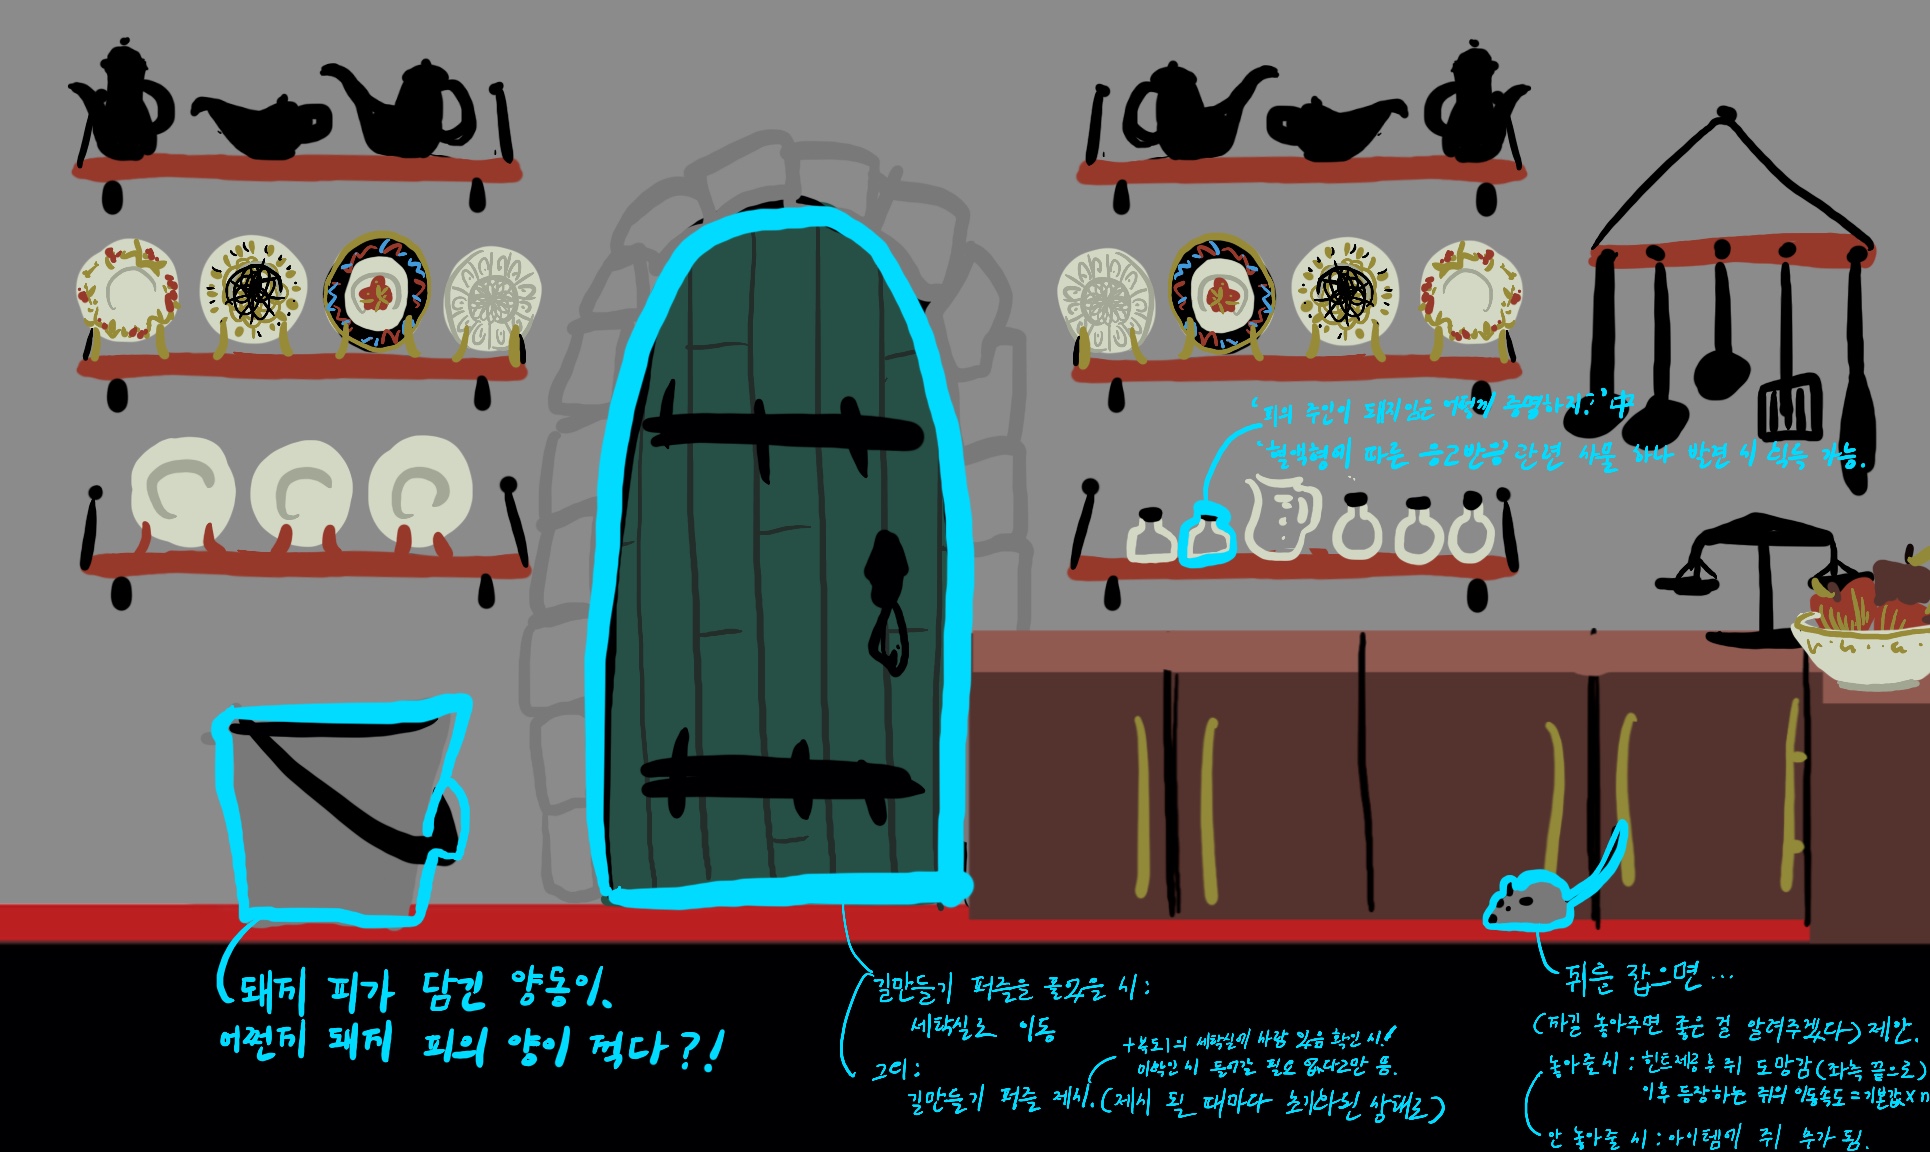 '피의 주인이 돼지임은 어떻게 증명하지?' 中
'혈액형에 따른 응고반응' 관련 사물 하나 발견 시 획득 가능.
돼지 피가 담긴 양동이.
어쩐지 돼지 피의 양이 적다?!
길만들기 퍼즐을 풀었을 시:
세탁실로 이동
그외:
+복도1의 세탁실에 사람 있음 확인 시!
미확인 시 들어갈 필요 없다고만 뜸.
길만들기 퍼즐 제시. (제시 될 때마다 초기화된 상태로)
쥐를 잡으면...
(자길 놓아주면 좋은 걸 알려주겠다) 제안.
놓아줄 시: 힌트제공 후 쥐 도망감 (좌측 끝으로)
이후 등장하는 쥐의 이동속도 = 기본값 x n
안 놓아줄 시: 아이템에 쥐 추가 됨.